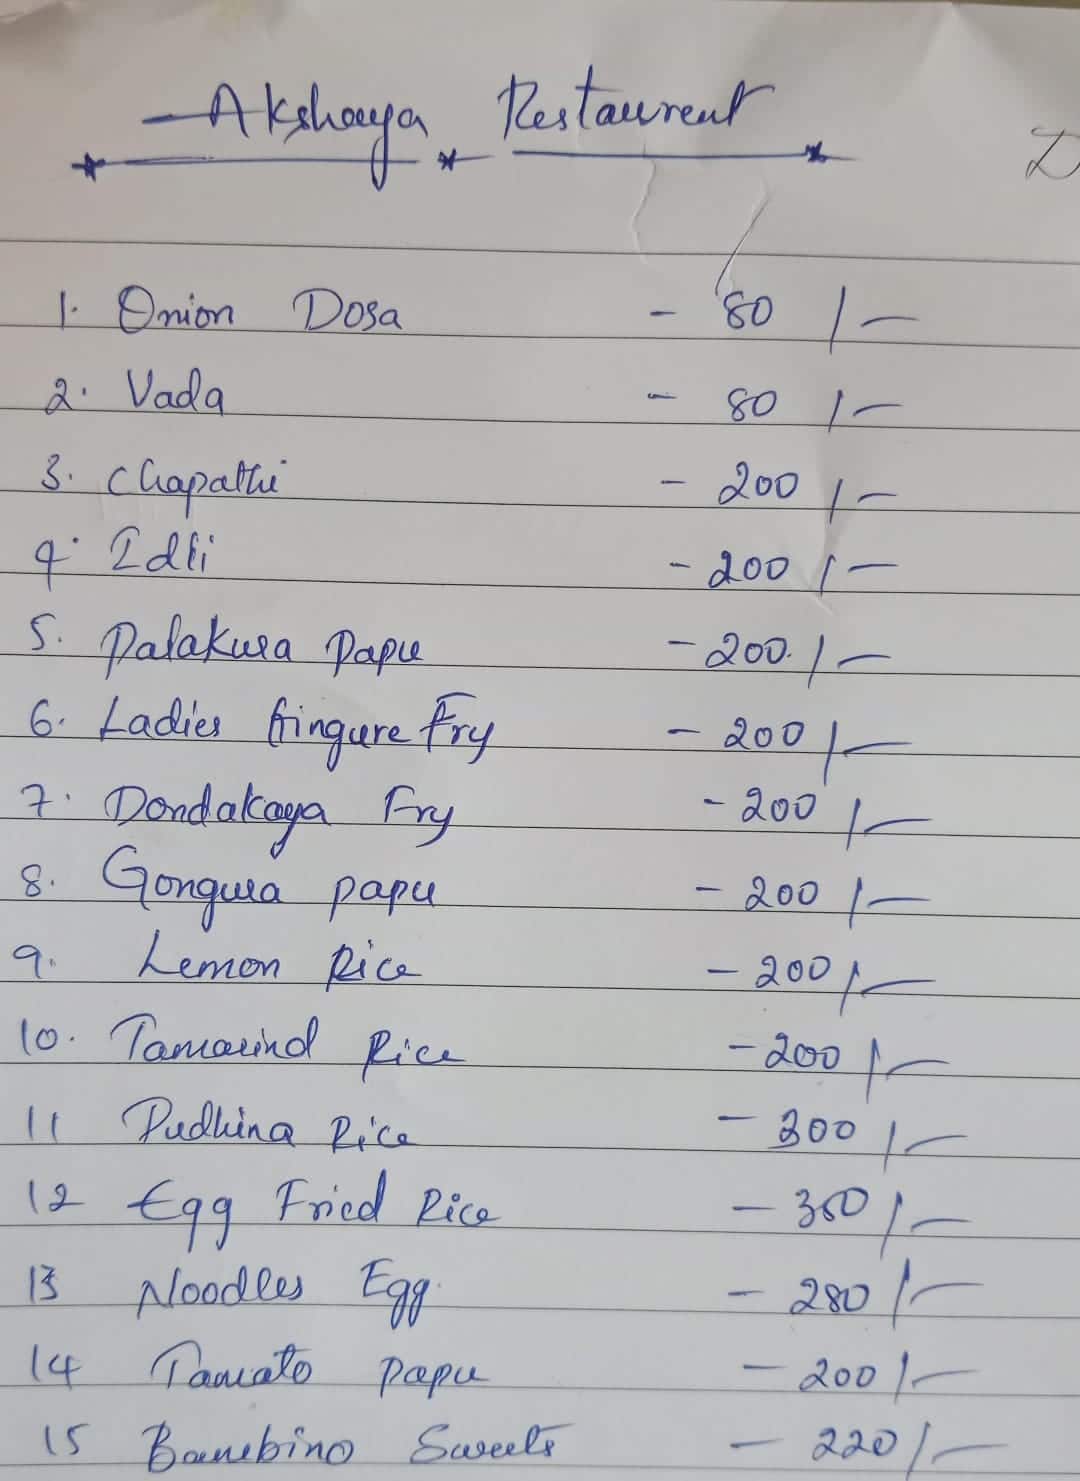 Akshaya Restaurent
1. Onion Dosa - 80 /-
2. Vada - 80 /-
3. Chapathi - 200 /-
4. Idli - 200 /-
5. Palakura Papu - 200 /-
6. Ladies fingure Fry - 200 /-
7. Dondakaya Fry - 200 /-
8. Gongura papu - 200 /-
9. Lemon Rice - 200 /-
10. Tamarind Rice - 200 /-
11 Pudhina Rice - 300 /-
12 Egg Fried Rice - 350 /-
13 Noodles Egg - 280 /-
14 Tamato papu - 200 /-
15 Bambino Sweets - 220 /-